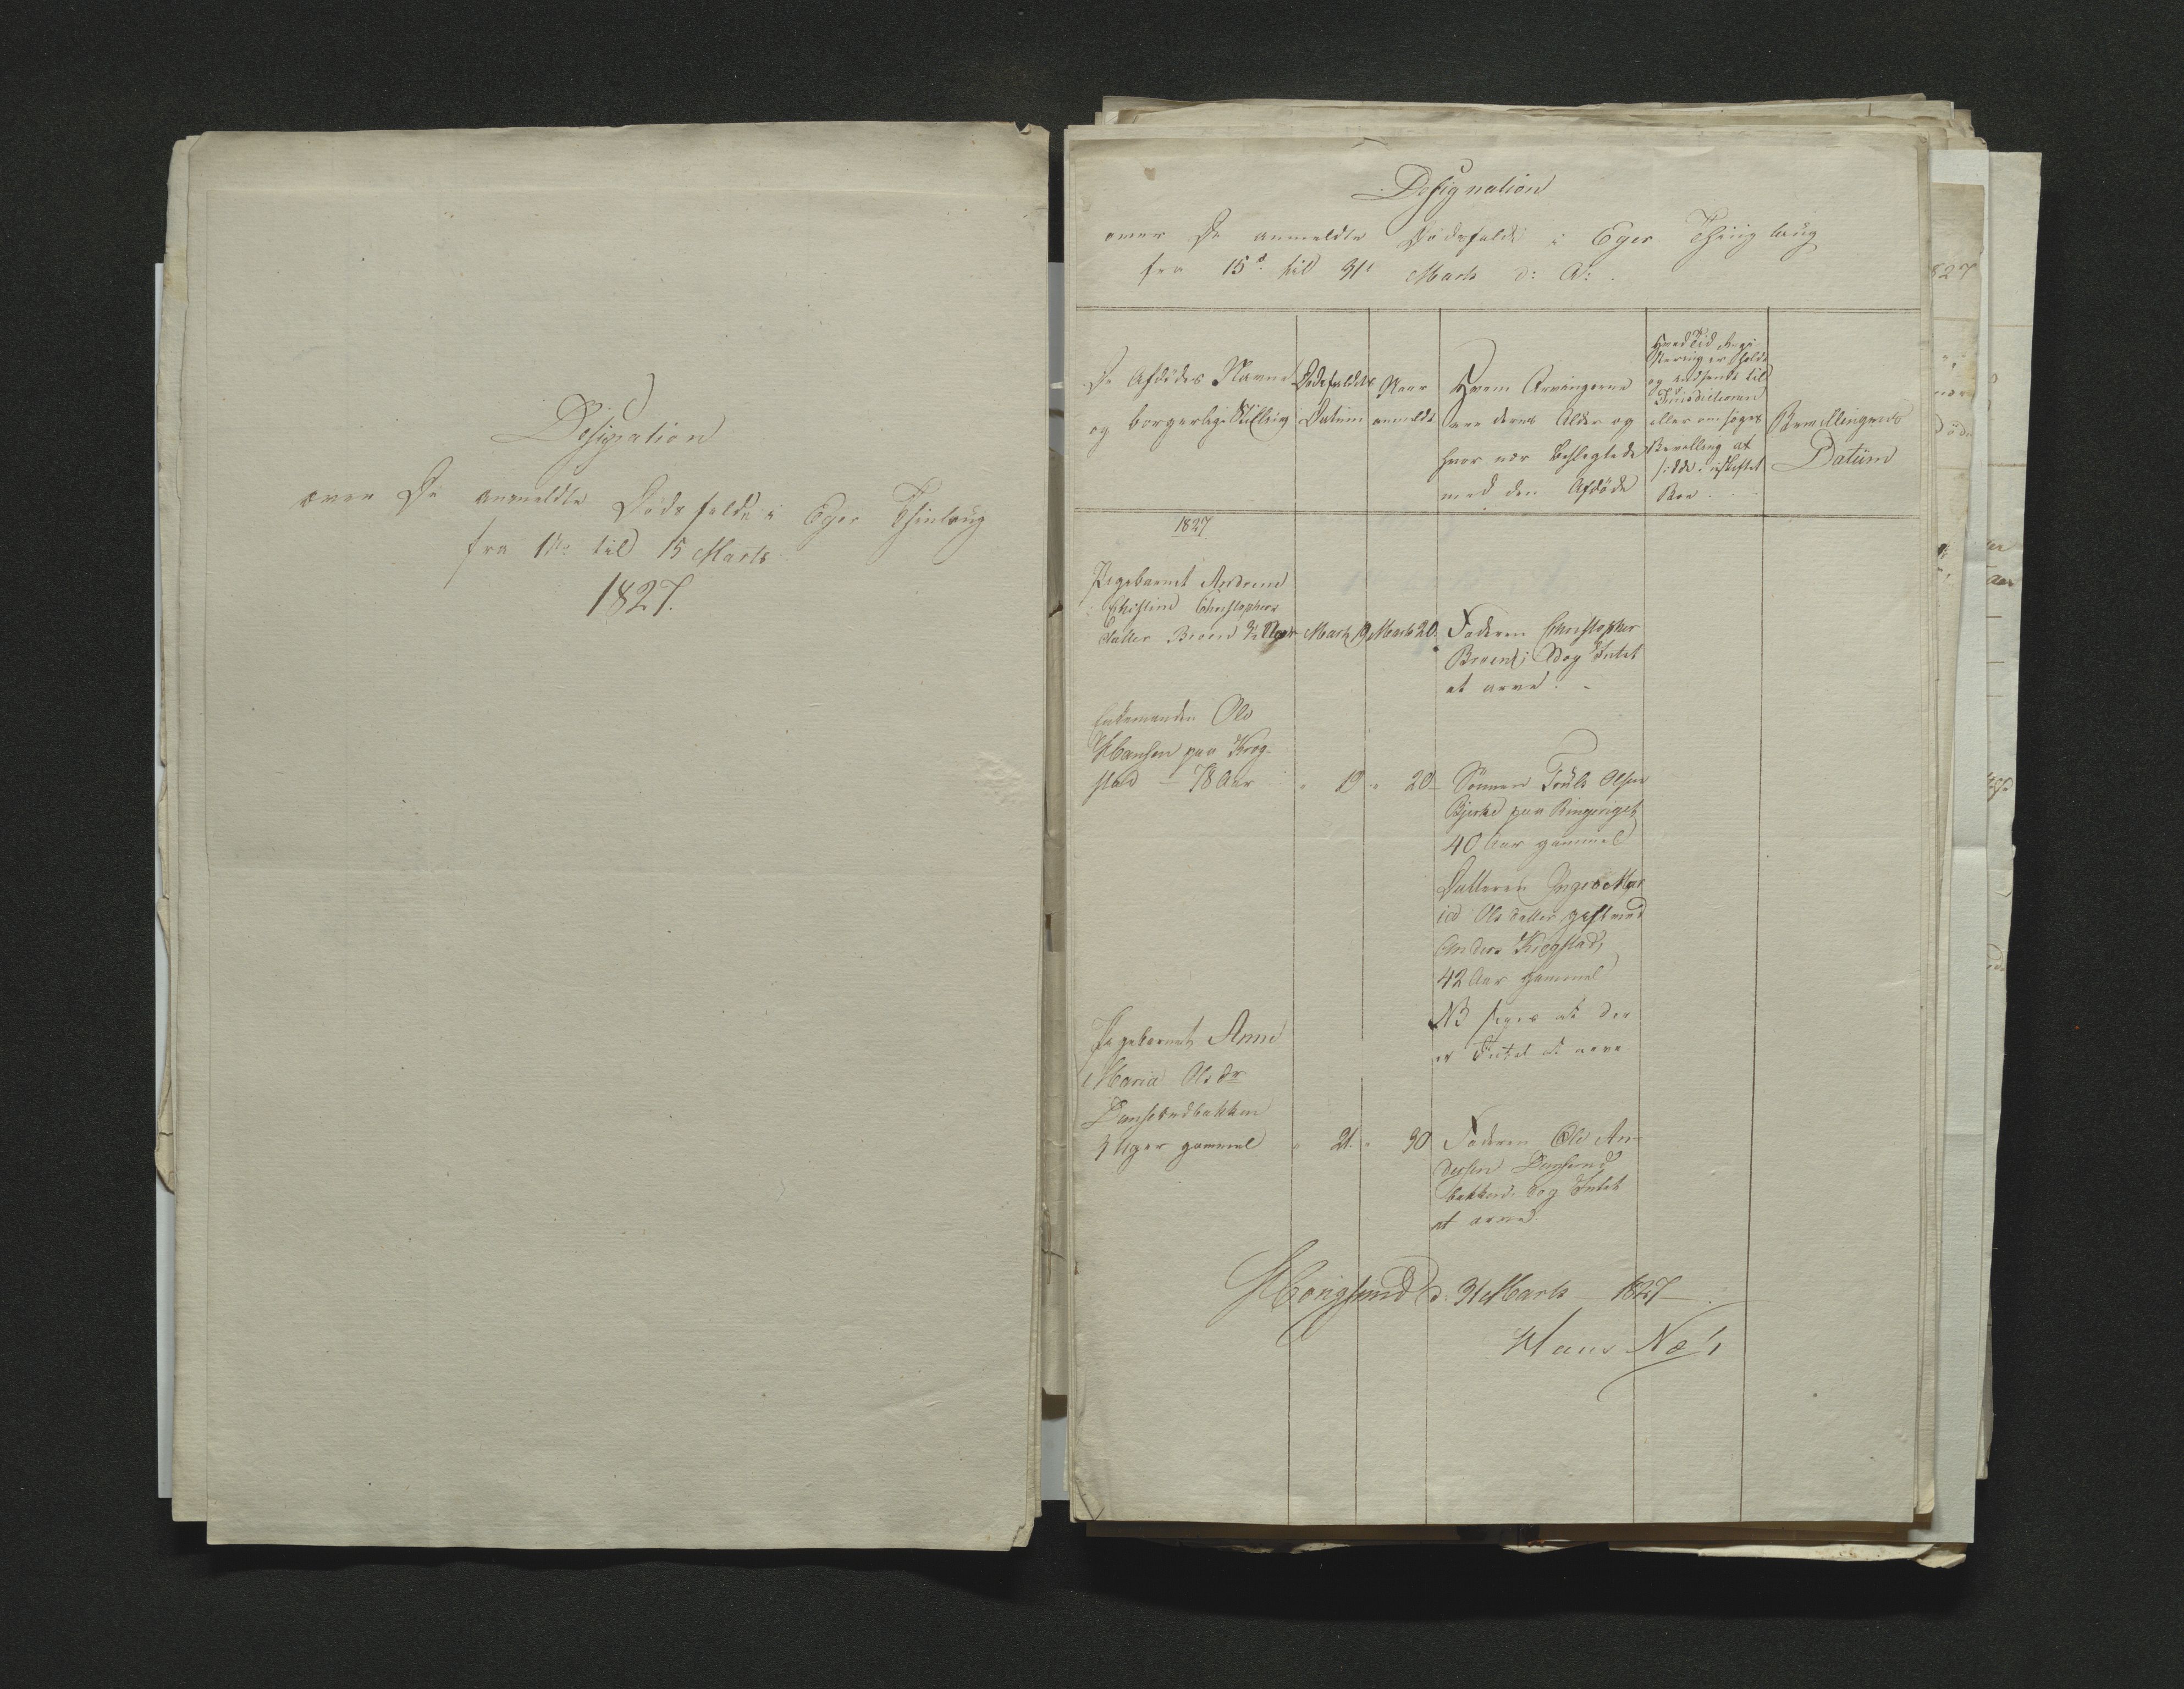 Designation
over De anmeldte Dødsfalde i Eger Thinlaug
fra 1ste til 15 Marts
1827.
Designation
over De anmeldte Dødsfalde i Eger Thinglaug
fra 15d: til 31t Marts d: A:
De Afdødes Navne
og borgerlige Stilling
Dødsfaldets
Datum
Naar
anmeldt
Hvem Arvingerne
ere deres Alder og
hvor nær beslegtede
med den Afdøde
Hvad Tid Regi
strering er holdt
og indsendt til
Jurisdictionen
eller om søges
Bevilling at
sidde i uskiftet
Boe
Bevillingens
Datum
1827
Pigebarnet Andrine
Christine Christophers
datter Broen 3/4 Aar Marts 19 Marts 20 Faderen Christopher
Broen; dog Intet
at arve.
Enkemanden Ole
Hansen paa Krog-
stad - 78 Aar " 19 " 20 Sønnen Truls Olsen
Bjerke paa Ringeriget
40 Aar gammel
Datteren Inger Mar
ia Olsdatter gift med
Anders Krogstad,
42 Aar gammel
NB siges at der
er Intet at arve
Pigebarnet Anne
Maria Olsdr
bakken
3 Uger gammel " 21 " 30 Faderen Ole An-
dersen
bakken dog Intet
at arve.
Hougsund d: 31 Marts 1827
Hans Næs
827